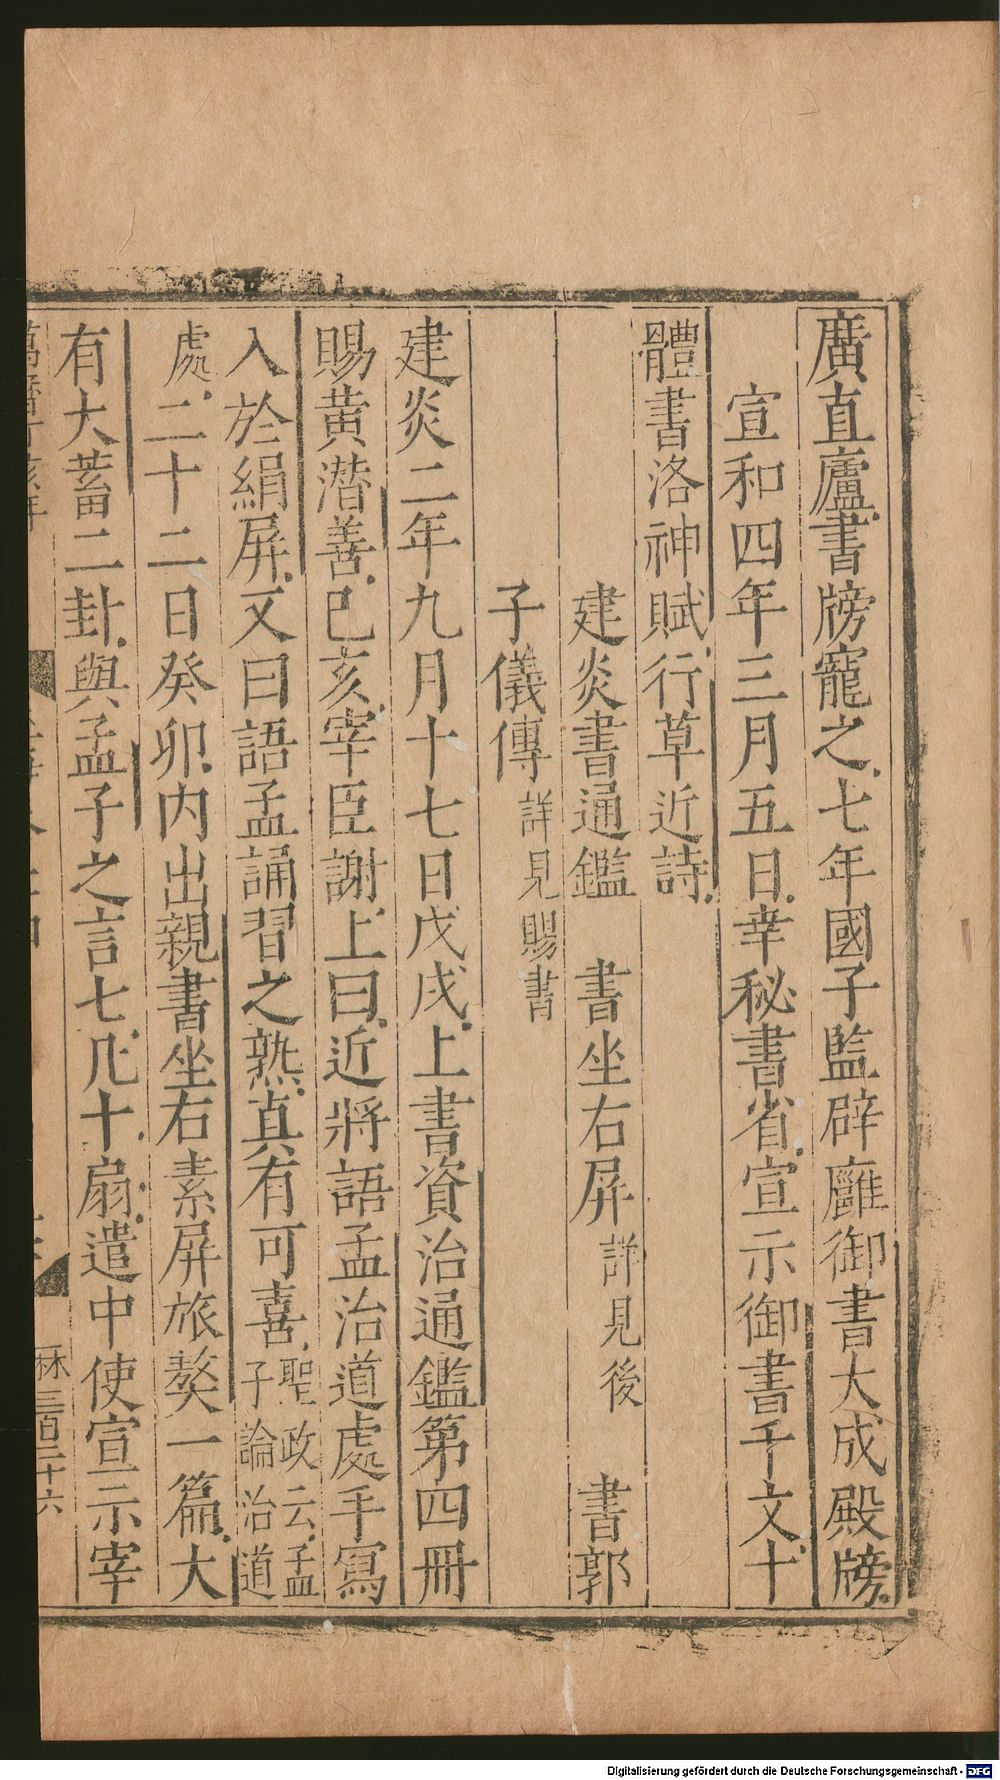 廣直廬書牓寵之七年國子監辟廱御書大成殿牓
宣和四年三月五日幸秘書省宣示御書千文十
體書洛神賦行草近詩
建炎書通鑑　書坐右屏詳見後　書郭
子儀傳詳見賜書
建炎二年九月十七日戊戌上書資治通鑑第四冊
賜黄潜善己亥宰臣謝上曰近將語孟治道處手寫
入於絹屏又曰語孟誦習之熟真有可喜聖政云孟子論治道
處二十二日癸卯内出親書坐右素屏旅獒一篇大
有大蓄二卦與孟子之言七凡十扇遣中使宣示宰
三百二十六
Digitalisierung gefördert durch die Deutsche Forschungsgemeinschaft - DFG